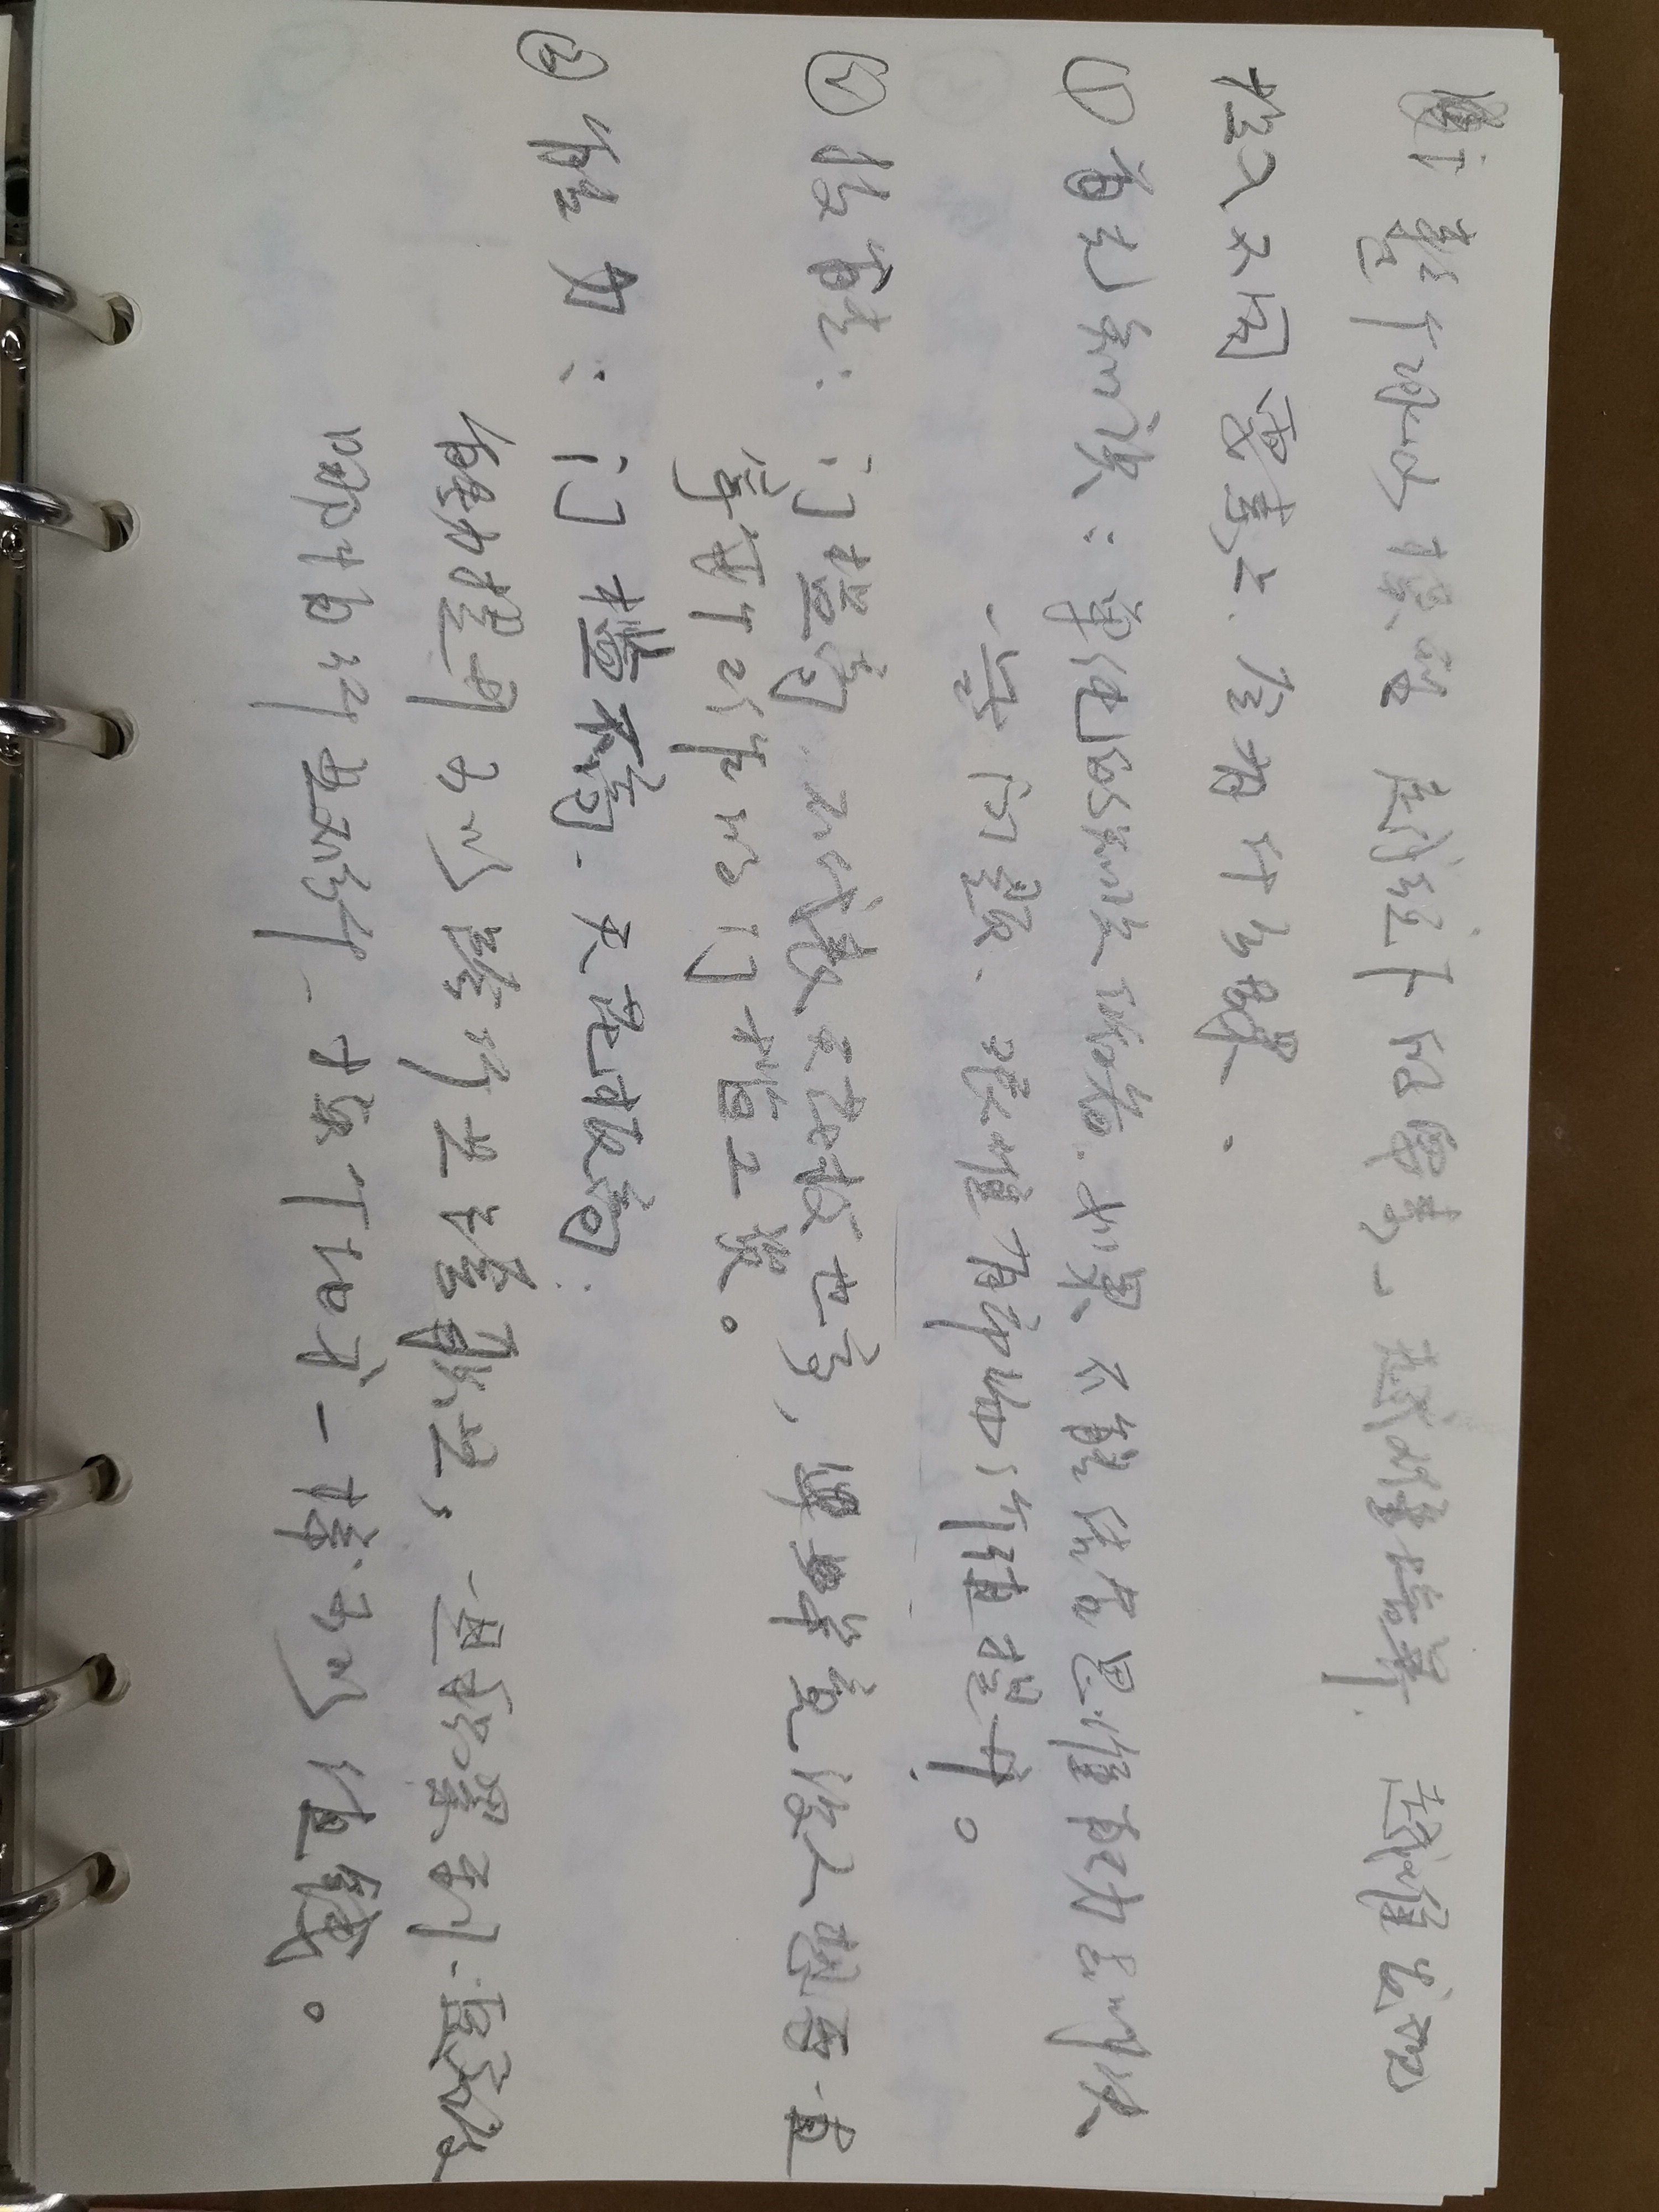 整个冰山模型越往下的要素、越难培养、越难发现
投入不同要素上、会有什么结果.
① 首先知识：单纯的知识储备、如果不能结合思维能力去解决
一些问题、很难有市场价值提升。
② 技能：门槛高、不代表天花板也高，毕竟没人想要一直
拿每个工作的门槛工资。
③ 能力：门槛不高、天花板高.
能力提升可以跨行业跨职业，一旦积累到一定高度
哪怕行业不行、换个地方一样可以值钱。